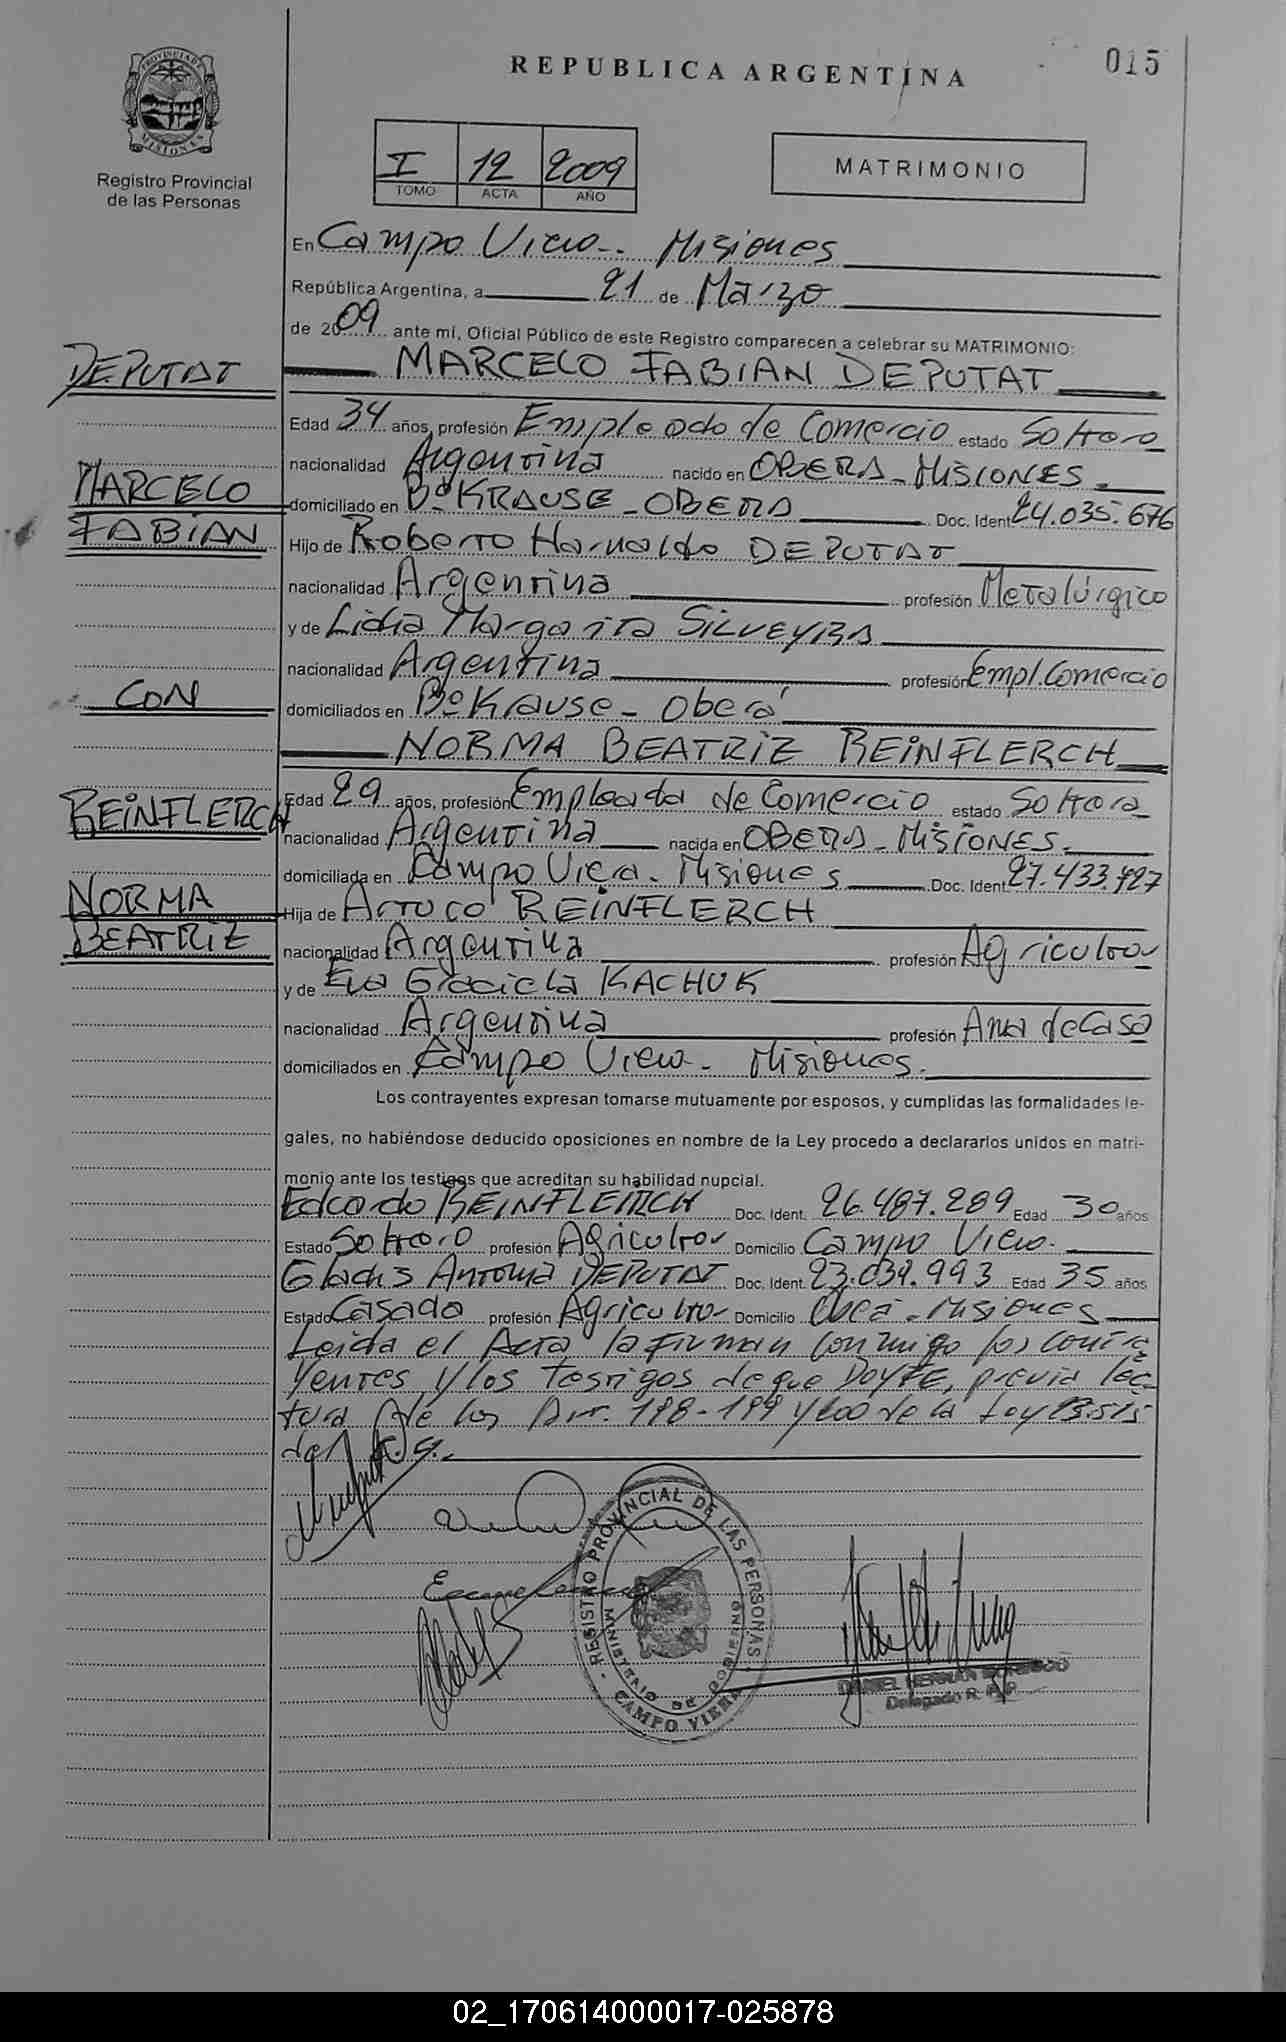 015
REPUBLICA ARGENTINA
PROVINCIA DE
MISIONES
Registro Provincial
de las Personas
I 12 2009
TOMO ACTA AÑO
MATRIMONIO
En Campo Viera -- Misiones
República Argentina, a 21 de Marzo
de 2009 ante mí, Oficial Público de este Registro comparecen a celebrar su MATRIMONIO:
DEPUTAT
MARCELO FABIAN DEPUTAT
Edad 34 años, profesión Empleado de Comercio estado Soltero
nacionalidad Argentina nacido en OBERA - MISIONES.
MARCELO
domiciliado en Bº KRAUSE - OBERA Doc. Ident. 24.035.676
FABIAN
Hijo de Roberto Harnaldo DEPUTAT
nacionalidad Argentina profesión Metalúrgico
y de Lidia Margarita SILVEYRA
nacionalidad Argentina profesión Empl. Comercio
CON
domiciliados en Bº Krause - Oberá
NORMA BEATRIZ REINFLERCH
Edad 29 años, profesión Empleada de Comercio estado Soltera
REINFLERCH
nacionalidad Argentina nacida en OBERA - MISIONES.
domiciliada en Campo Viera - Misiones Doc. Ident. 27.433.927
NORMA
Hija de Arturo REINFLERCH
BEATRIZ
nacionalidad Argentina profesión Agricultor
y de Eva Graciela KACHUK
nacionalidad Argentina profesión Ama de Casa
domiciliados en Campo Viera - Misiones.
Los contrayentes expresan tomarse mutuamente por esposos, y cumplidas las formalidades le-
gales, no habiéndose deducido oposiciones en nombre de la Ley procedo a declararlos unidos en matri-
monio ante los testigos que acreditan su habilidad nupcial.
Eduardo REINFLEIRCH Doc. Ident. 26.487.289 Edad 30 años
Estado Soltero profesión Agricultor Domicilio Campo Viera.
Gladis Antonia DEPUTAT Doc. Ident. 23.039.993 Edad 35 años
Estado Casada profesión Agricultor Domicilio Oberá - Misiones
Leída el Acta la firman conmigo los contra
yentes y los Testigos de que DOY FE, previa lec-
tura de los Art. 198-199 y 200 de la Ley 23.515
del C.C.
REGISTRO PROVINCIAL DE LAS PERSONAS
MINISTERIO DE GOBIERNO
CAMPO VIERA
DANIEL HERNAN
Delegado R.P.P.
02_170614000017-025878